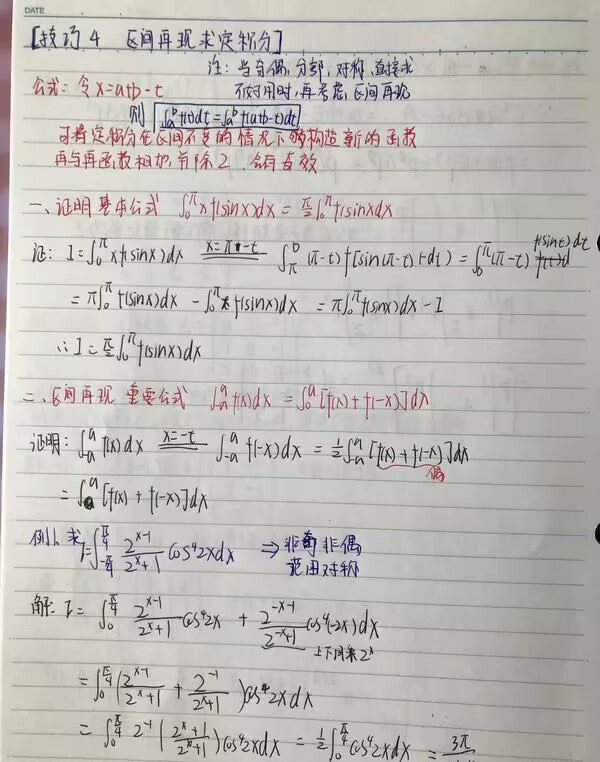 DATE
[技巧4 区间再现求定积分]
注: 当奇偶, 分部, 对称, 直接求
不好用时, 再考虑, 区间再现
公式: 令 x=a+b-t
则 ∫_a^b f(t)dt=∫_a^b f(a+b-t)dt
可将定积分在区间不变的情况下构造新的函数
再与再函数相加, 前除2, 会有奇效
一、证明基本公式 ∫_0^π xf(sinx)dx = π/2 ∫_0^π f(sinx)dx
证: I=∫_0^π xf(sinx)dx x=π-t ∫_π^0 (π-t) f[sin(π-t)](-dt) = ∫_0^π (π-t) f(sint)dt
= π∫_0^π f(sinx)dx - ∫_0^π x f(sinx)dx = π∫_0^π f(sinx)dx - I
∴ I = π/2 ∫_0^π f(sinx)dx
二、区间再现 重要公式 ∫_{-a}^a f(x)dx = ∫_0^a [f(x)+f(-x)]dx
证明: ∫_{-a}^a f(x)dx x=-t ∫_{-a}^a f(-x)dx = 1/2 ∫_{-a}^a [f(x)+f(-x)]dx
偶
= ∫_0^a [f(x)+f(-x)]dx
例1、求 I=∫_{-π/4}^{π/4} 2^{x-1}/(2^x+1) cos^4 2x dx ⇒ 非奇非偶
范围对称
解: I = ∫_0^{π/4} 2^{x-1}/(2^x+1) cos^4 2x + 2^{-x-1}/(2^{-x}+1) cos^4(-2x)dx
上下同乘2^x
= ∫_0^{π/4} (2^{x-1}/(2^x+1) + 2^{-1}/(2^x+1)) cos^4 2x dx
= ∫_0^{π/4} 2^{-1} ((2^x+1)/(2^x+1)) cos^4 2x dx = 1/2 ∫_0^{π/4} cos^4 2x dx = 3π